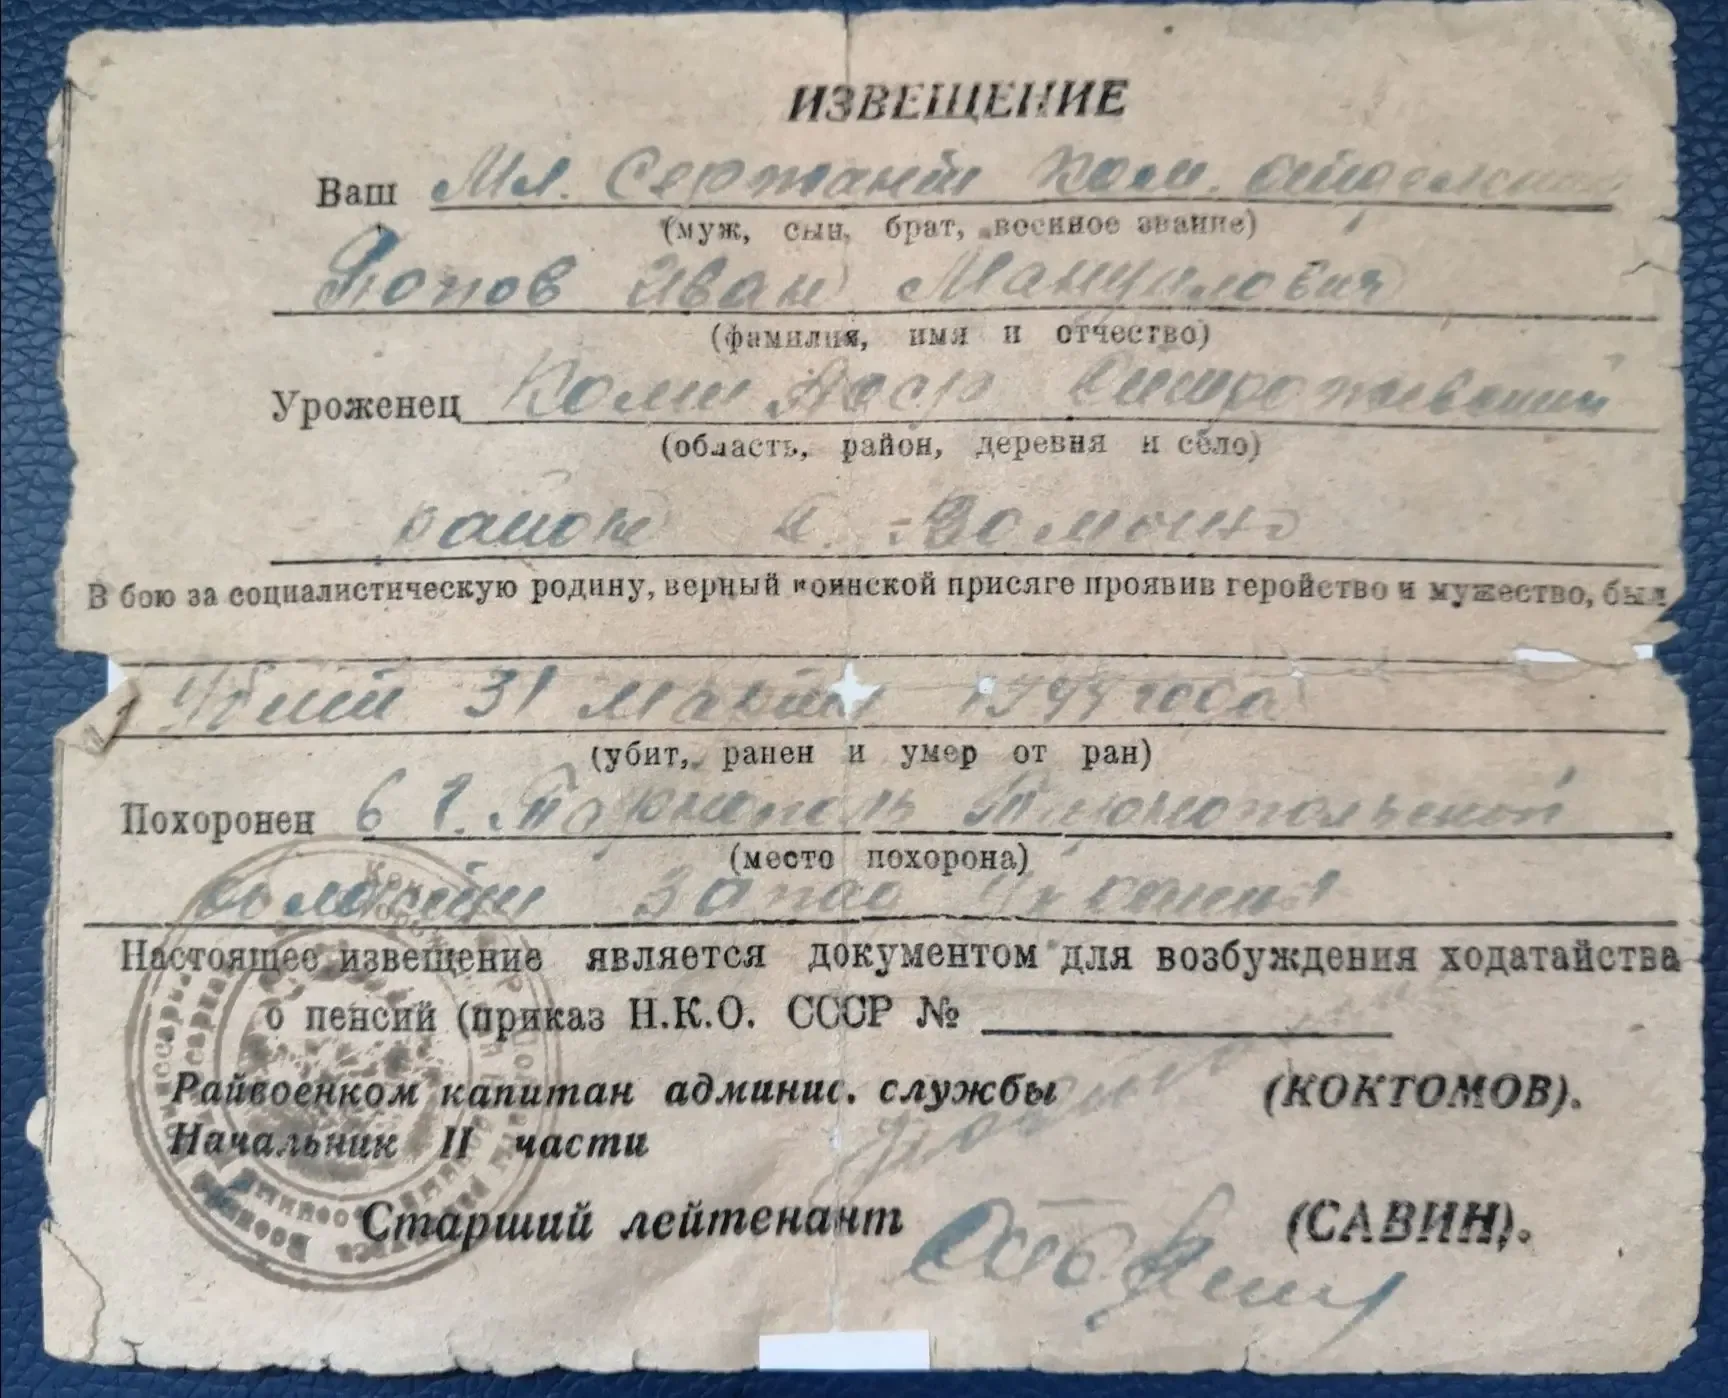 ИЗВЕЩЕНИЕ
Ваш Мл. Сержант Ком. отделения
(муж, сын, брат, военное звание)
Попов Иван Мануилович
(фамилия, имя и отчество)
Уроженец Коми Асср Сторожевский
(область, район, деревня и село)
район с.
В бою за социалистическую родину, верный воинской присяге проявив геройство и мужество, был
Убит 31 марта 1944 года
(убит, ранен и умер от ран)
Похоронен в г. Тарнополь Тарнопольской
(место похорона)
области Запад Украины
Настоящее извещение является документом для возбуждения ходатайства
о пенсий (приказ Н.К.О. СССР №
Райвоенком капитан админис. службы (КОКТОМОВ).
Начальник II части
Старший лейтенант (САВИН).